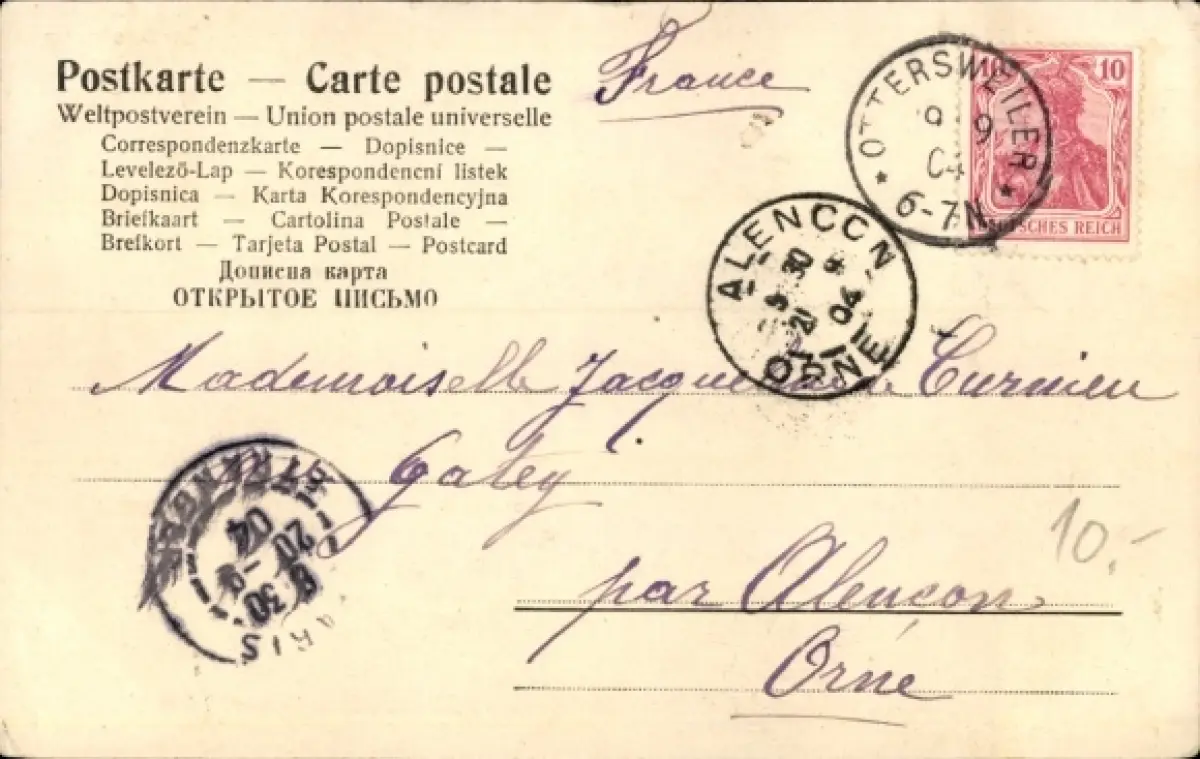 Postkarte — Carte postale
Weltpostverein — Union postale universelle
Correspondenzkarte — Dopisnice —
Levelező-Lap — Korespondencní listek
Dopisnica — Karta Korespondencyjna
Briefkaart — Cartolina Postale —
Brefkort — Tarjeta Postal — Postcard
Дописна карта
ОТКРЫТОЕ ПИСЬМО
France
* OTTERSWEILER *
9 9
04
6-7N.
10
DEUTSCHES REICH
ALENCON
30
21 04
ORNE
Mademoiselle Jacqueline
par Alencon
Orne
ETRANGER
04
20
30
PARIS
10.-